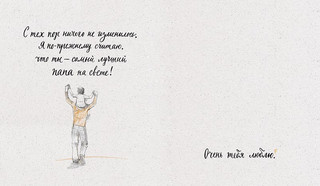 С тех пор ничего не изменилось.
Я по-прежнему считаю,
что ты – самый лучший
папа на свете!
Очень тебя люблю.